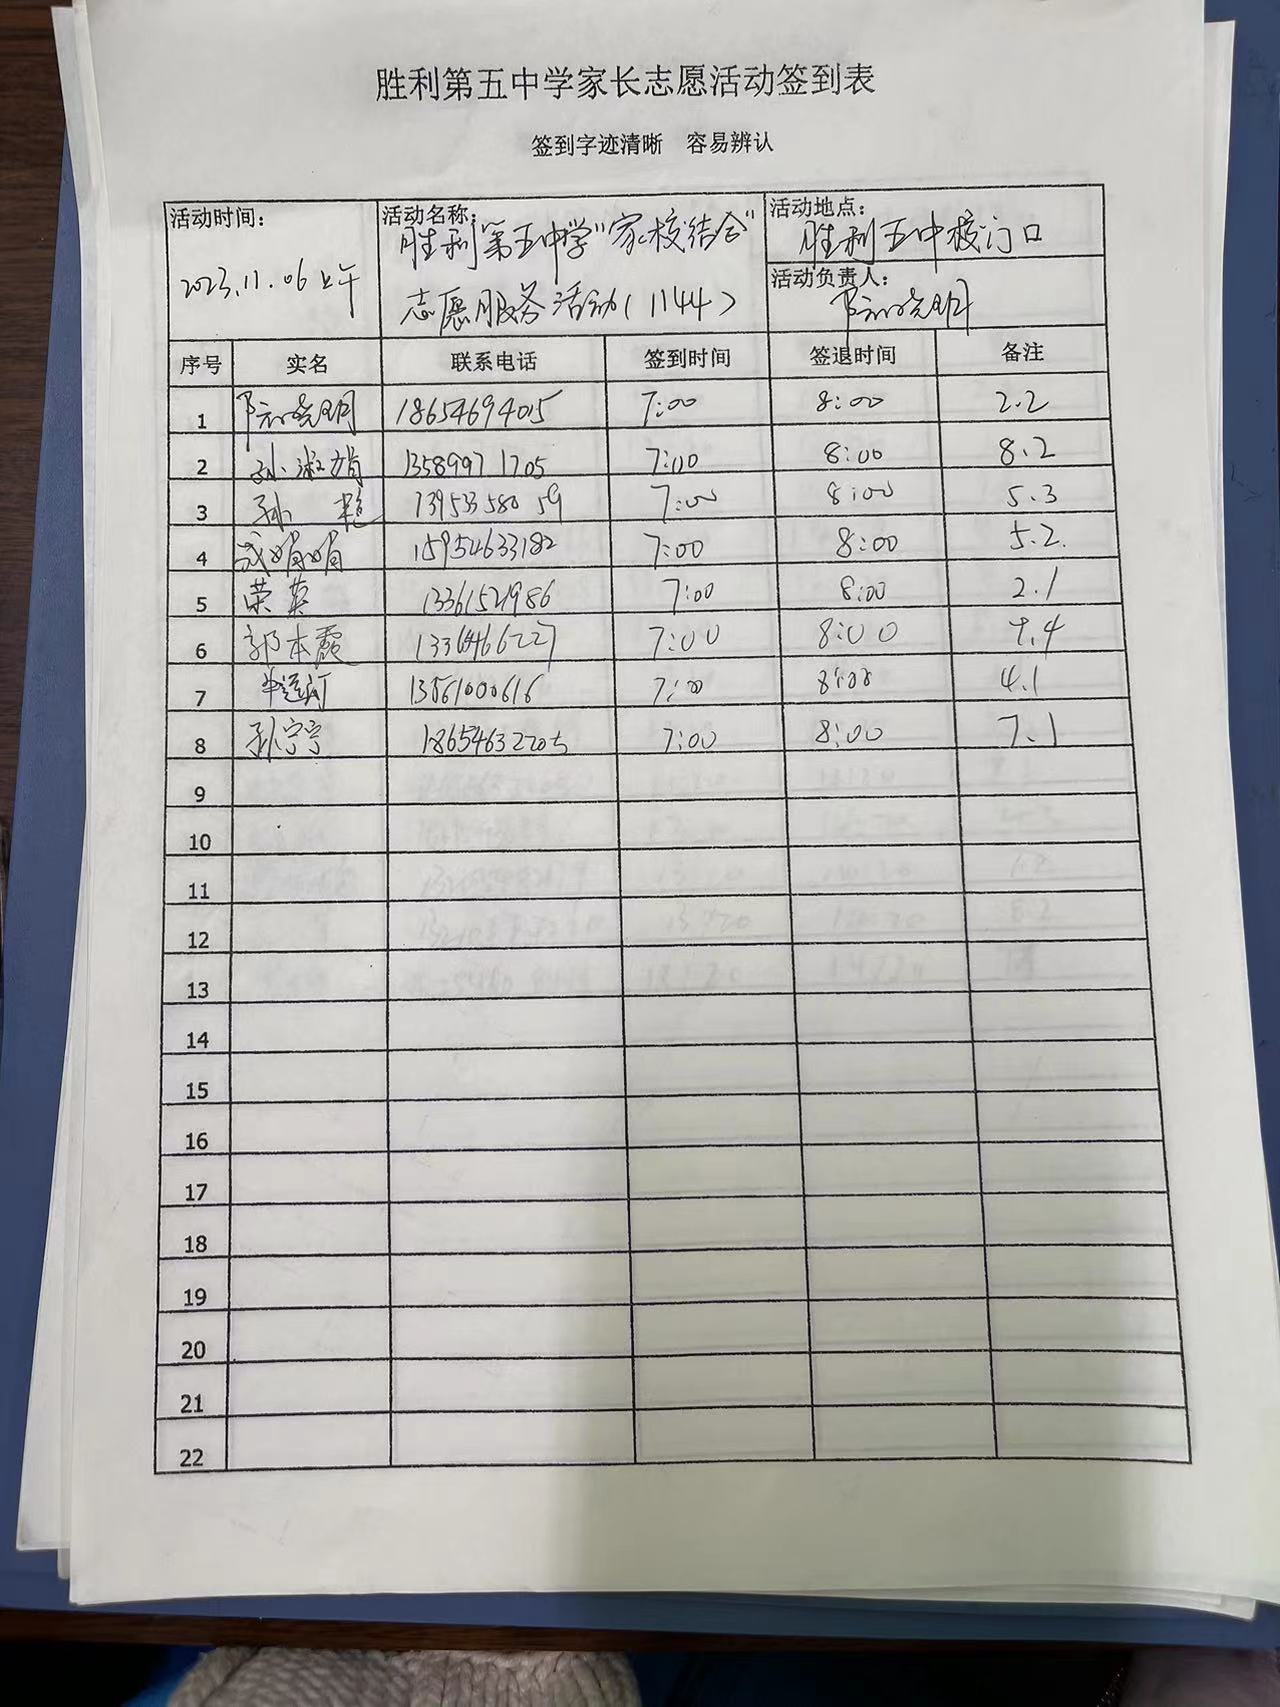 胜利第五中学家长志愿活动签到表
签到字迹清晰 容易辨认
活动时间: 2023.11.06上午
活动名称: 胜利第五中学"家校结合"
志愿服务活动(1144)
活动地点: 胜利五中校门口
活动负责人:
序号 实名 联系电话 签到时间 签退时间 备注
1 18654694015 7:00 8:00 2.2
2 孙淑娟 13589971705 7:00 8:00 8.2
3 孙艳 13953358059 7:00 8:00 5.3
4 成娟娟 15954633182 7:00 8:00 5.2.
5 荣英 13361521986 7:00 8:00 2.1
6 郭本霞 7:00 8:00 7.4
7 13561000616 7:00 8:00 4.1
8 孙宁宁 18654632205 7:00 8:00 7.1
9
10
11
12
13
14
15
16
17
18
19
20
21
22